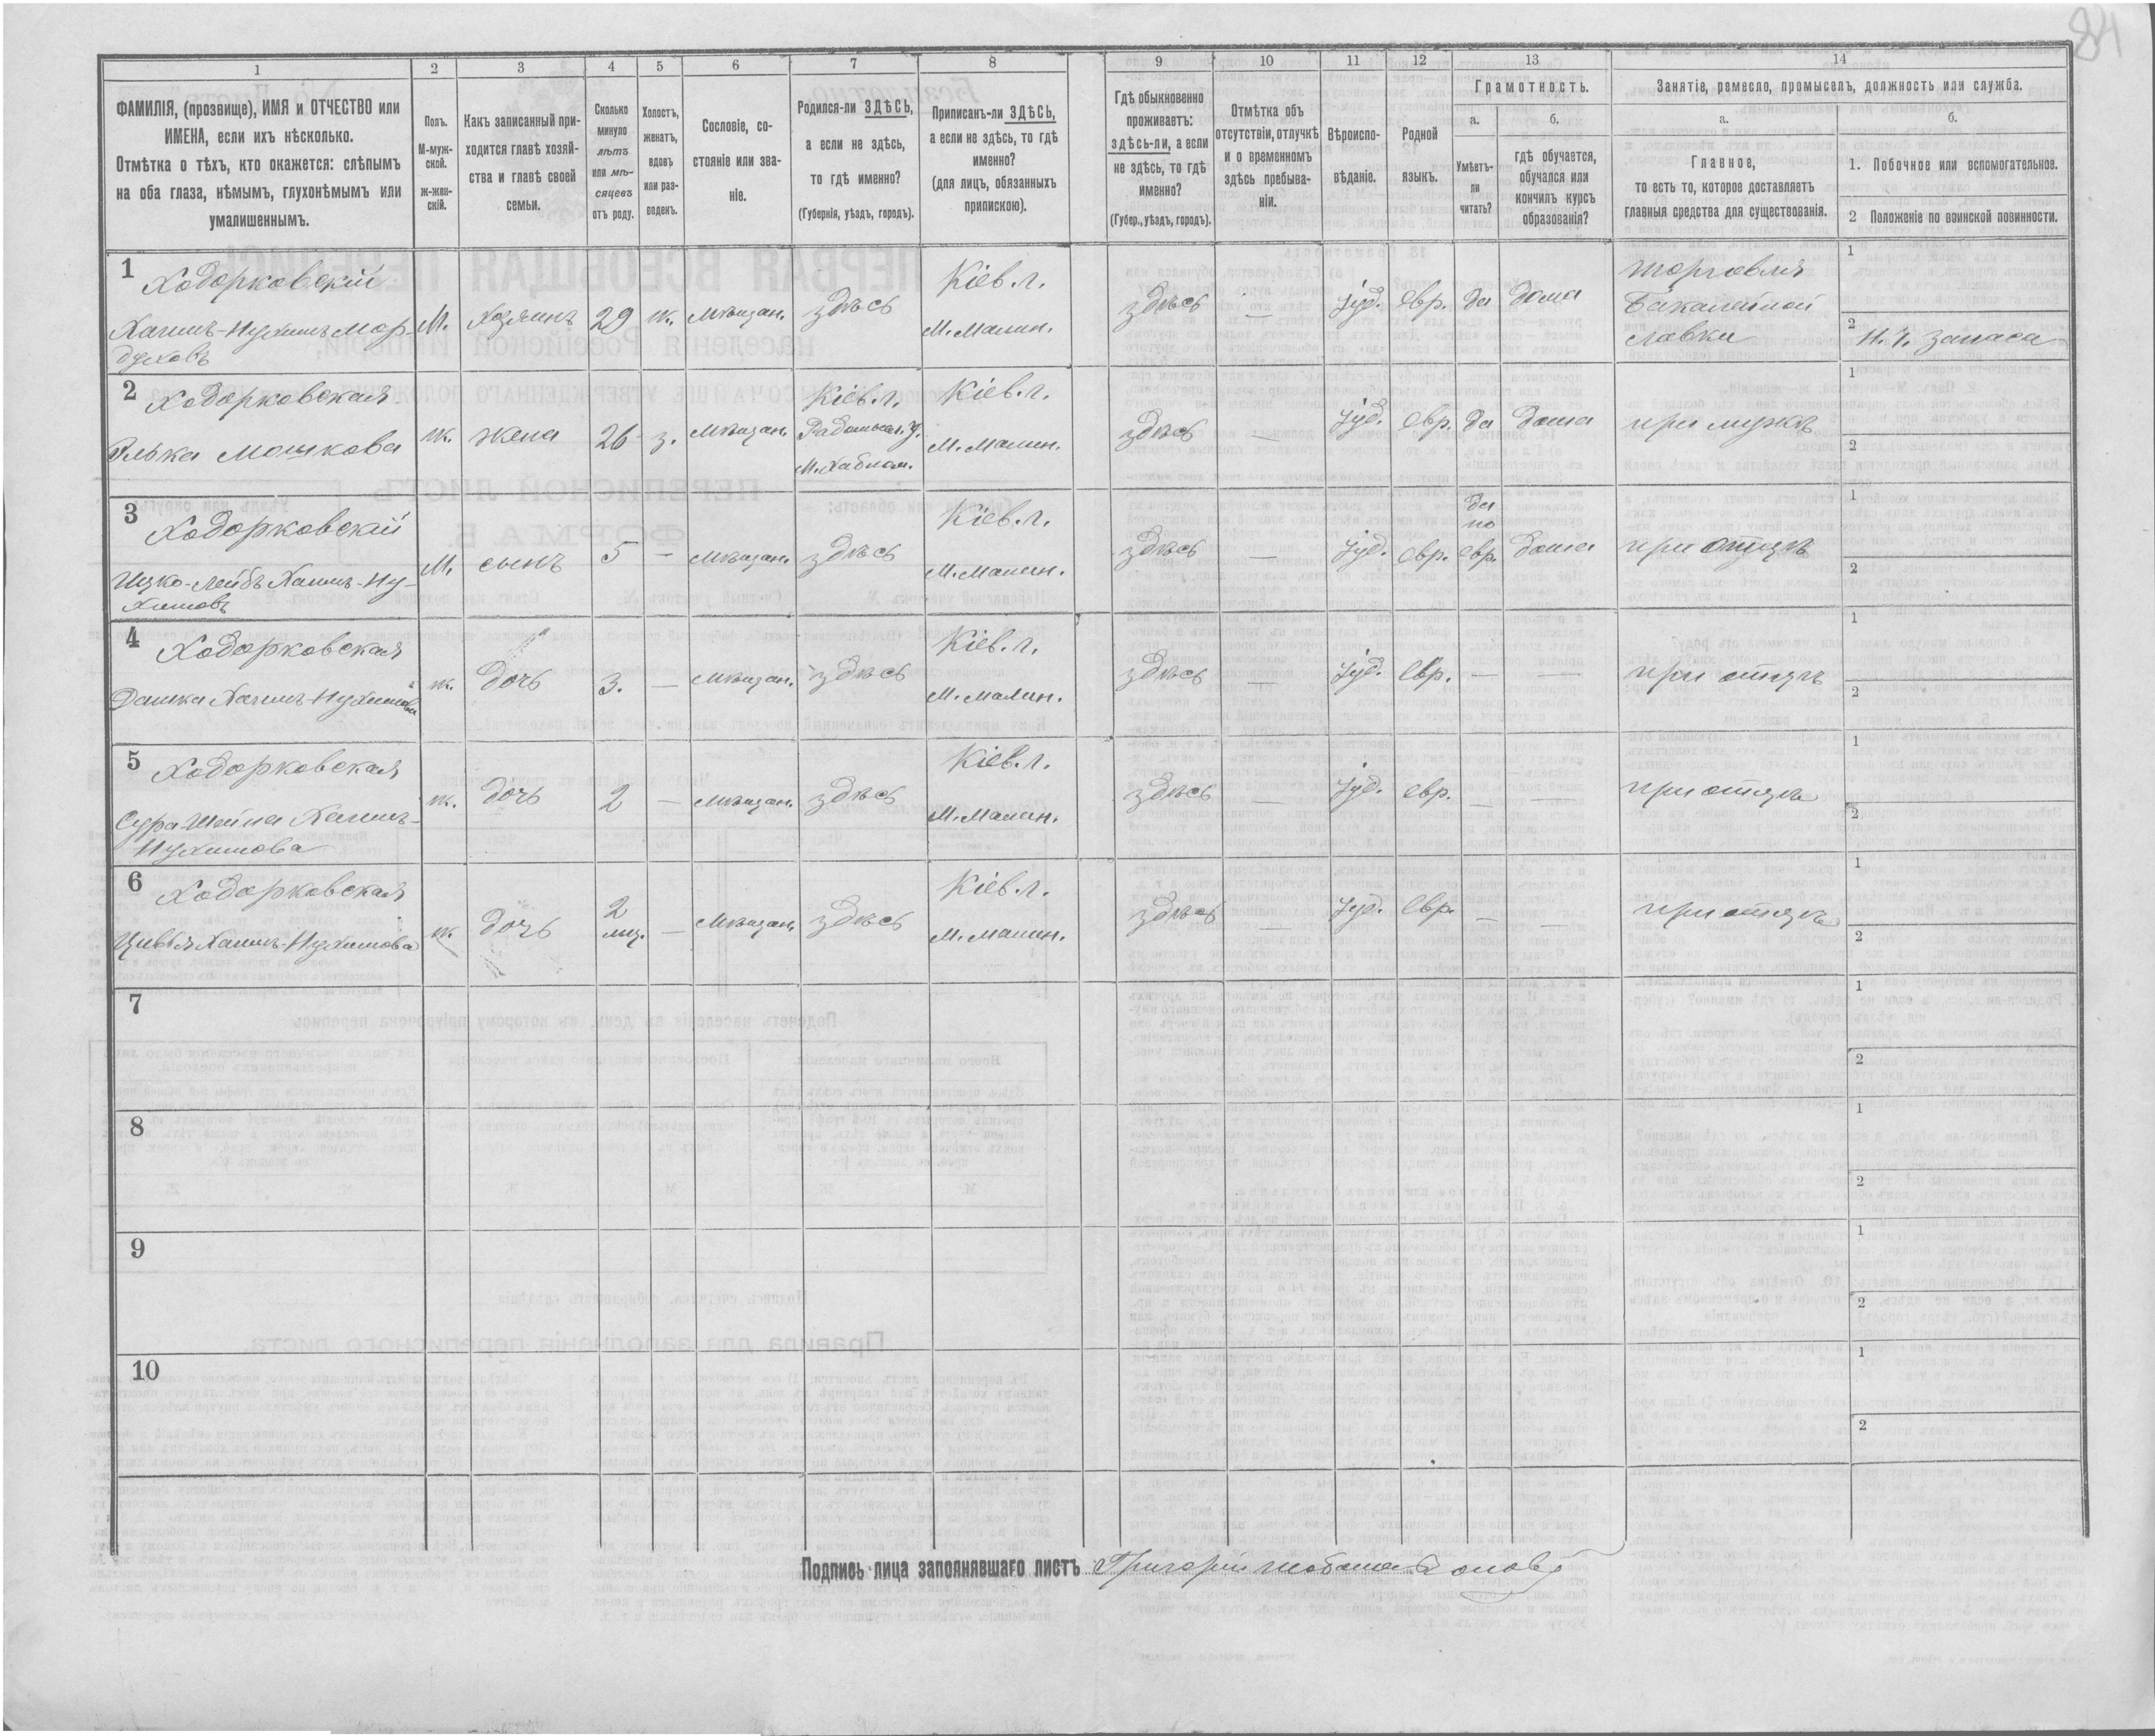 84
1
2
3
4
5
6
7
8
9
10
11
12
13
14
ФАМИЛІЯ, (прозвище), ИМЯ и ОТЧЕСТВО или
ИМЕНА, если ихъ нѣсколько.
Отмѣтка о тѣхъ, кто окажется: слѣпымъ
на оба глаза, нѣмымъ, глухонѣмымъ или
умалишеннымъ.
Полъ.
М-муж-
ской.
ж-жен-
скій.
Какъ записанный при-
ходится главѣ хозяй-
ства и главѣ своей
семьи.
Сколько
минуло
лѣтъ
или мѣ-
сяцевъ
отъ роду.
Холостъ,
женатъ,
вдовъ
или раз-
веденъ.
Сословіе, со-
стояніе или зва-
ніе.
Родился-ли ЗДѢСЬ,
а если не здѣсь,
то гдѣ именно?
(Губернія, уѣздъ, городъ).
Приписанъ-ли ЗДѢСЬ,
а если не здѣсь, то гдѣ
именно?
(для лицъ, обязанныхъ
припискою).
Гдѣ обыкновенно
проживаетъ:
здѣсь-ли, а если
не здѣсь, то гдѣ
именно?
(Губер., уѣздъ, городъ).
Отмѣтка объ
отсутствіи, отлучкѣ
и о временномъ
здѣсь пребыва-
ніи.
Вѣроиспо-
вѣданіе.
Родной
языкъ.
Грамотность.
а.
Умѣетъ-
ли
читать?
б.
гдѣ обучается,
обучался или
кончилъ курсъ
образованія?
Занятіе, ремесло, промыселъ, должность или служба.
а.
Главное,
то есть то, которое доставляетъ
главныя средства для существованія.
б.
1. Побочное или вспомогательное.
2 Положеніе по воинской повинности.
1 Ходорковскій
Хаимъ-Нухимъ Мор-
духовъ
М. хозяинъ 29 ж. мѣщан. здѣсь
Кіев. г.
М. Малин.
здѣсь — Іуд. Евр. да дома
торговля
Бакалейной
лавки
1
2 Н. Ч. запаса
2 Ходорковская
Элька Мошкова
ж. жена 26 з. мѣщан.
Кіев. г.
Радомысл. у.
М. Хабном.
Кіев. г.
М. Малин.
здѣсь — Іуд. Евр. да дома при мужѣ
1
2
3 Ходорковскій
Ицко-Лейбъ Хаимъ-Ну-
химовъ
М. сынъ 5 — мѣщан. здѣсь
Кіев. г.
М. Малин.
здѣсь — Іуд. евр.
да
по
евр.
дома при отцѣ
1
2
4 Ходорковская
Дашка Хаимъ-Нухимова
ж. дочь 3. — мѣщан. здѣсь
Кіев. г.
М. Малин.
здѣсь — Іуд. Евр. — — при отцѣ
1
2
5 Ходорковская
Сура Шейна Хаимъ-
Нухимова
ж. дочь 2 — мѣщан. здѣсь
Кіев. г.
М. Малин.
здѣсь — Іуд. евр. — — при отцѣ
1
2
6 Ходорковская
Цивья Хаимъ-Нухимова
ж. дочь
2
мц.
— мѣщан. здѣсь
Кіев. г.
М. Малин.
здѣсь — Іуд. Евр. — — при отцѣ
1
2
7
1
2
8
1
2
9
1
2
10
1
2
Подпись лица заполнявшаго листъ Григорій